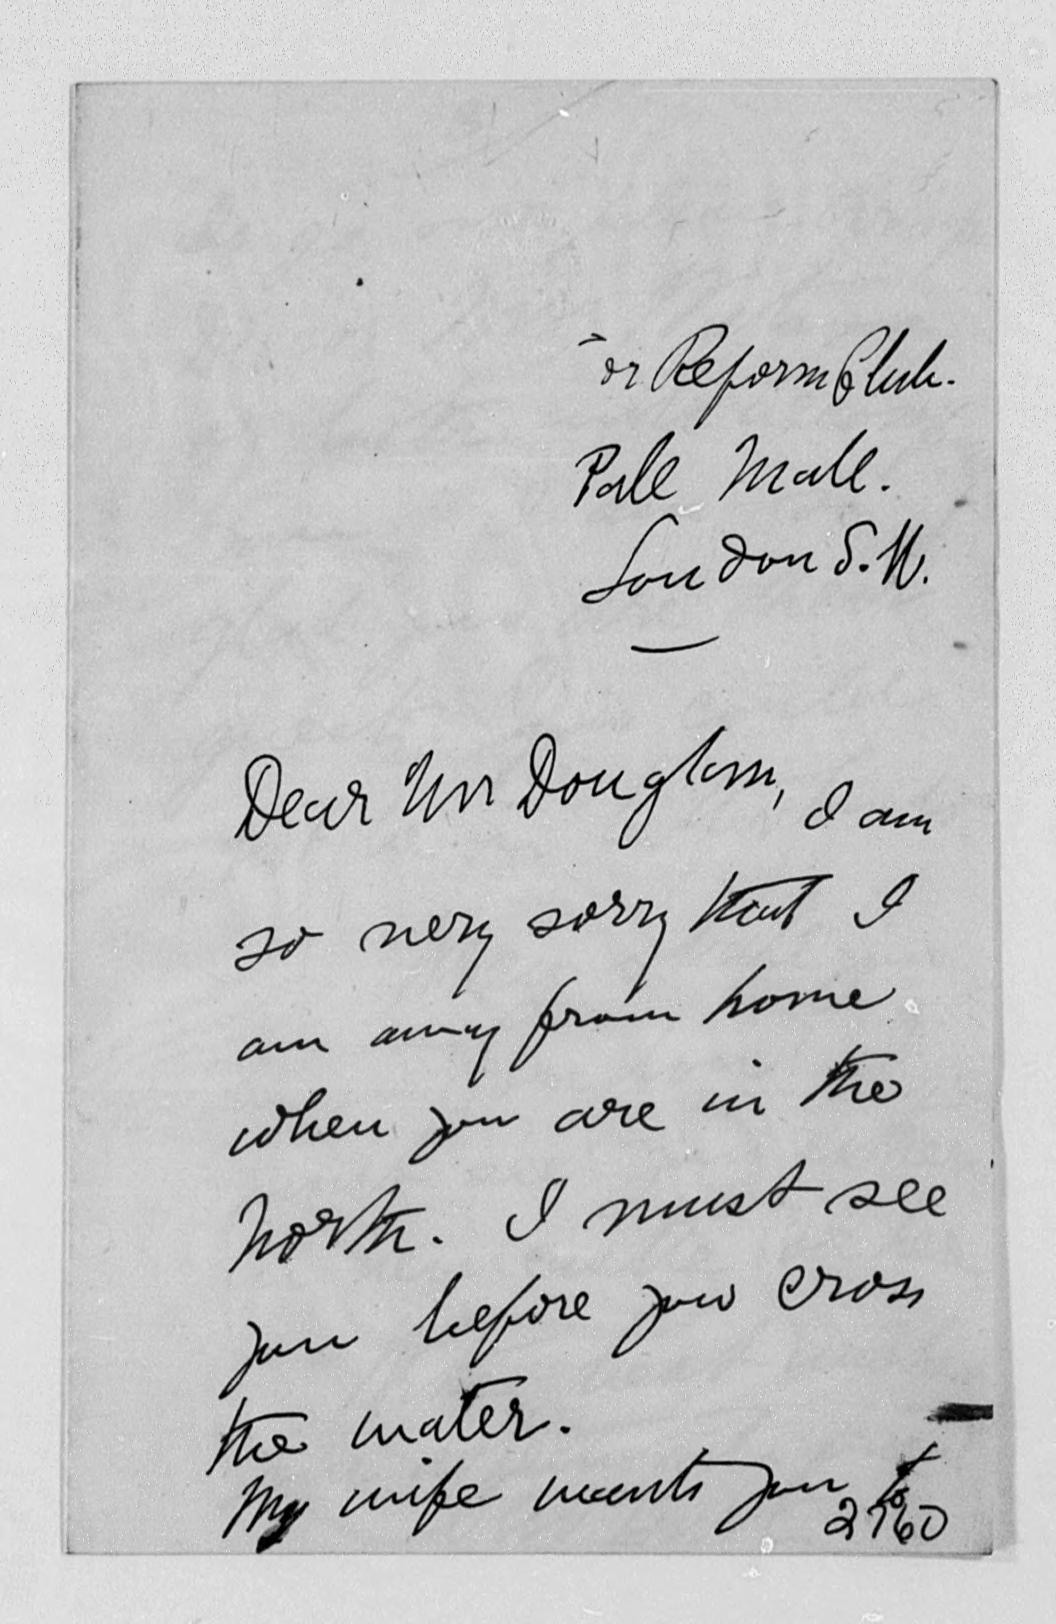 or Reform Club.
Pall Mall.
London S.W.
Dear Mr Douglass, I am
so very sorry that I
am away from home
when you are in the
North. I must see
you before you cross
the water.
My wife wants you to
2760